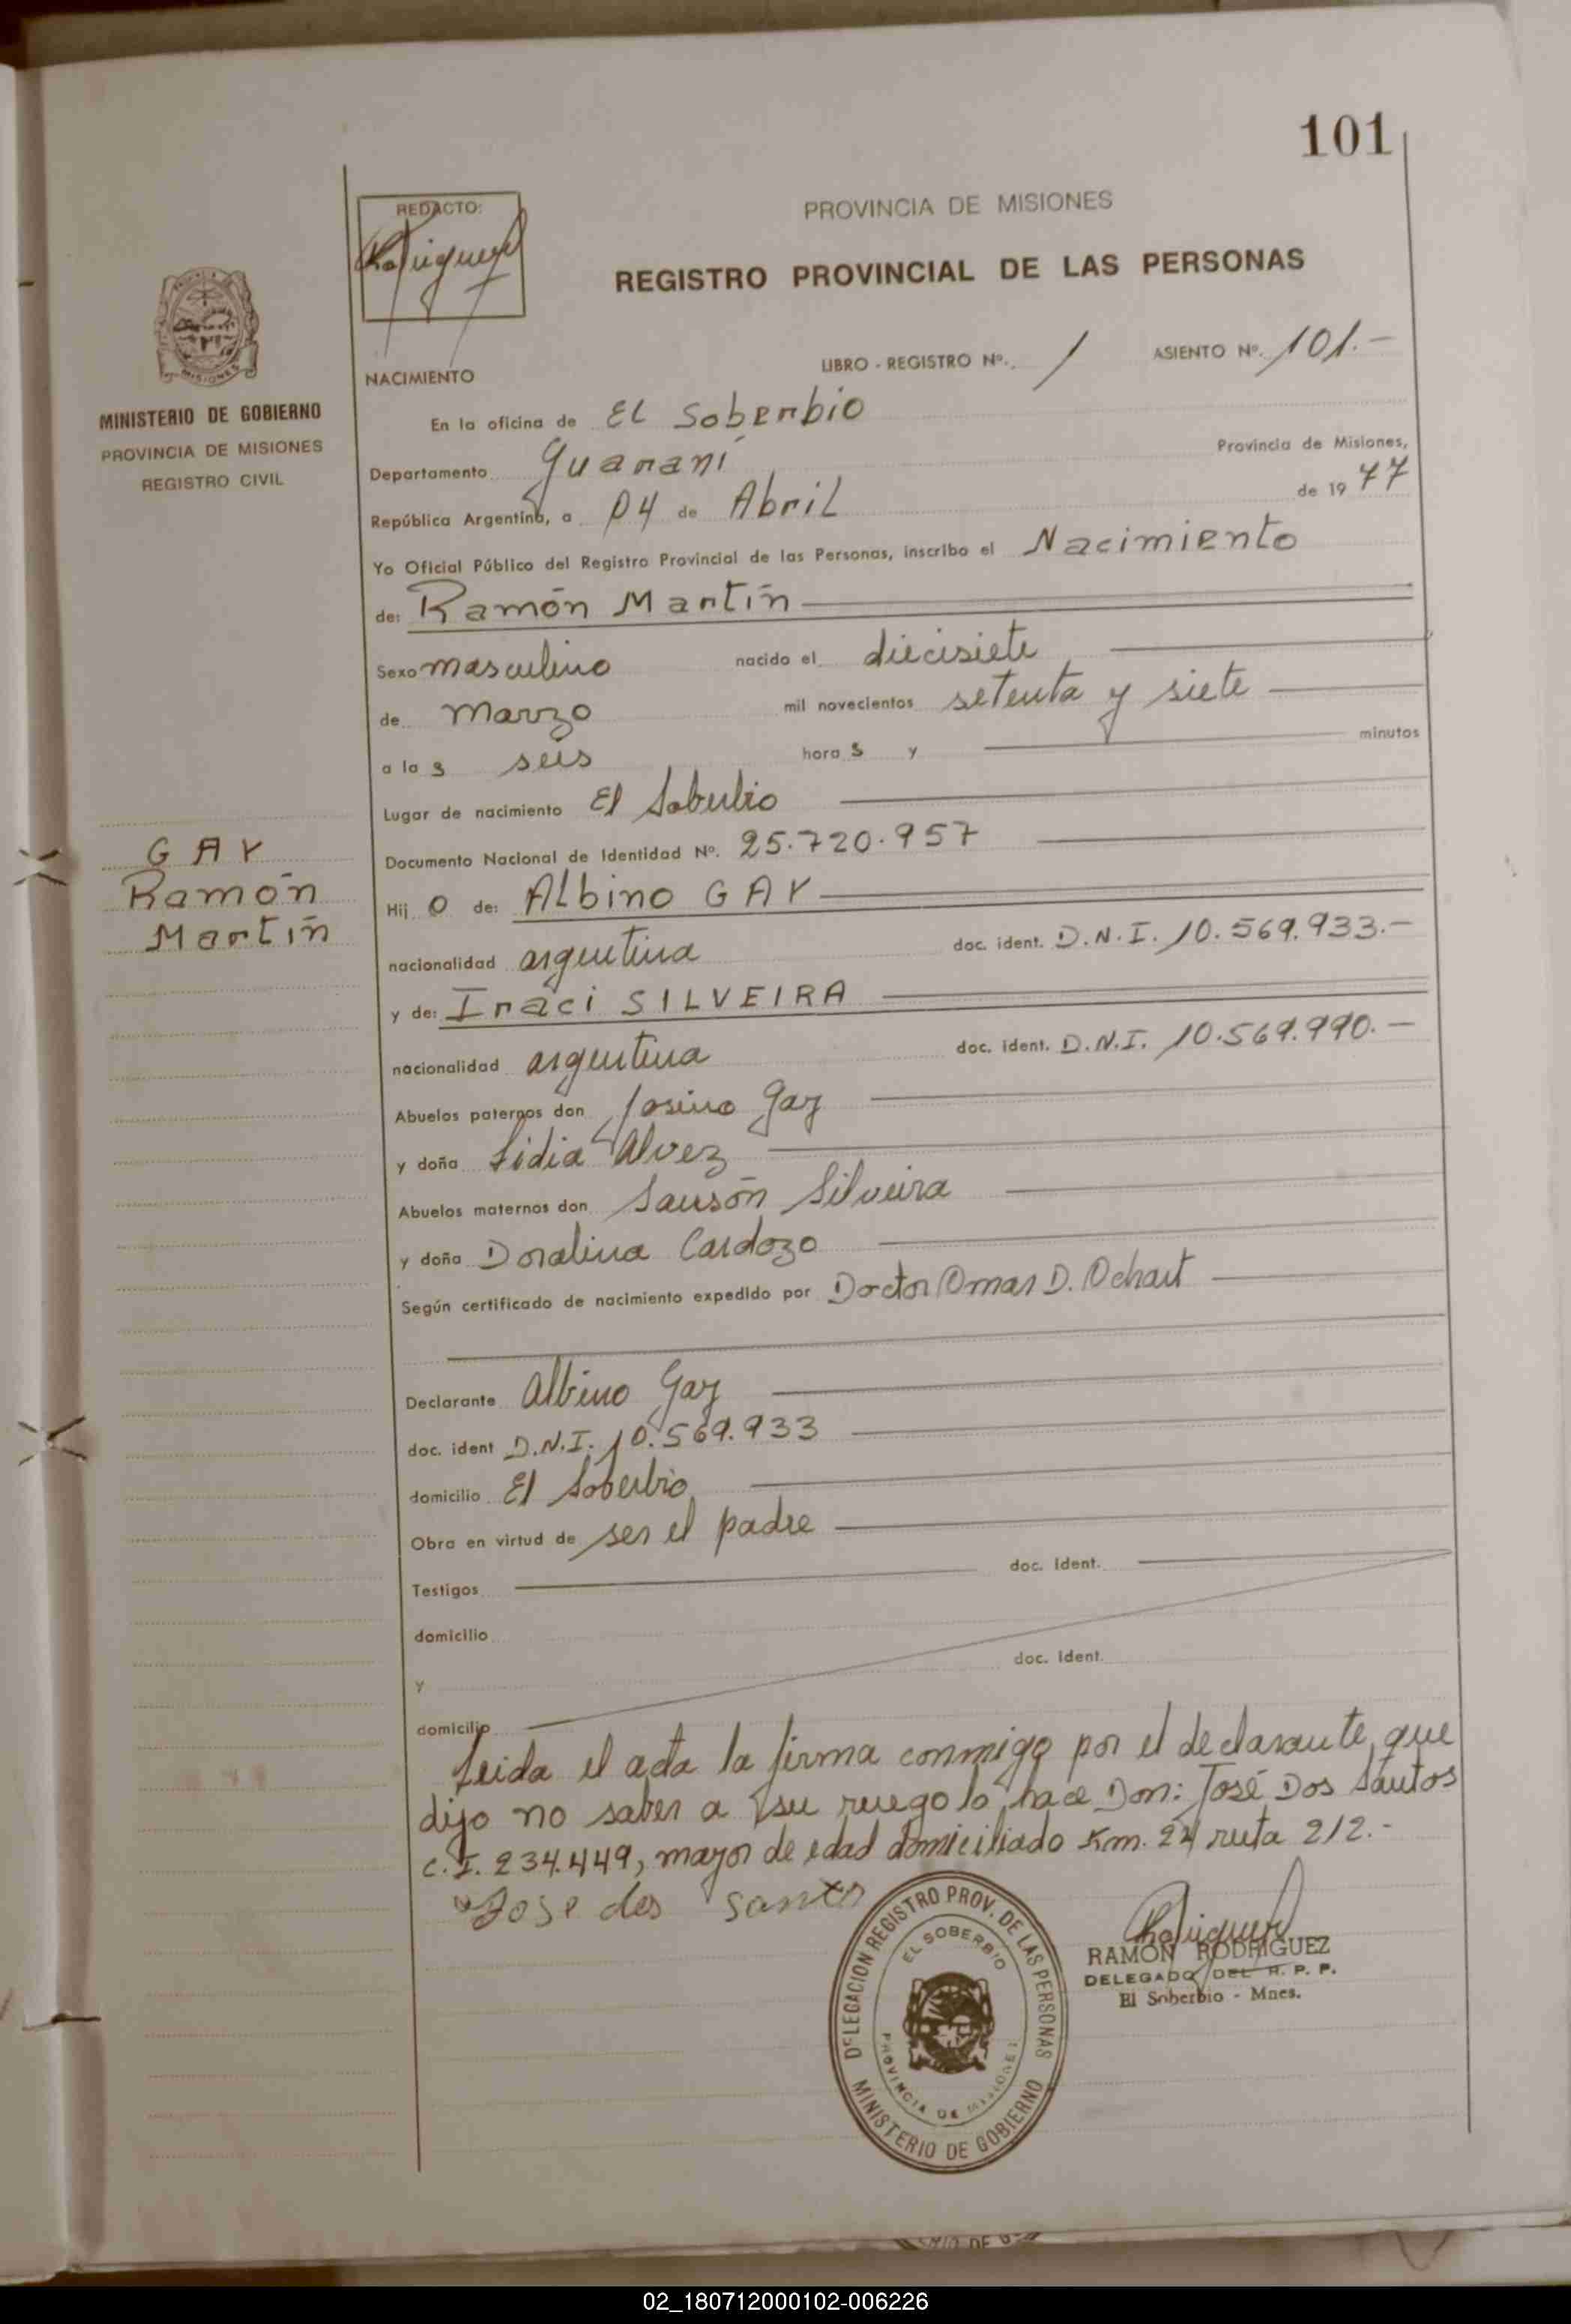 101
REDACTO:
PROVINCIA DE MISIONES
REGISTRO PROVINCIAL DE LAS PERSONAS
MINISTERIO DE GOBIERNO
PROVINCIA DE MISIONES
REGISTRO CIVIL
NACIMIENTO
LIBRO - REGISTRO Nº. 1 ASIENTO Nº. 101.-
En la oficina de EL Soberbio
Departamento Guaraní Provincia de Misiones,
República Argentina, a 04 de Abril de 1977
Yo Oficial Público del Registro Provincial de las Personas, inscribo el Nacimiento
de: Ramón Martín
Sexo masculino nacido el diecisiete
de Marzo mil novecientos setenta y siete
a las seis horas y minutos
Lugar de nacimiento El Soberbio
Documento Nacional de Identidad Nº. 25.720.957
GAY
Ramón
Martín
Hijo de: ALbino GAY
nacionalidad argentina doc. ident. D.N.I. 10.569.933.-
y de: Iraci SILVEIRA
nacionalidad argentina doc. ident. D.N.I. 10.569.990.-
Abuelos paternos don Josino Gay
y doña Lidia Alvez
Abuelos maternos don Sansón Silveira
y doña Doralina Cardozo
Según certificado de nacimiento expedido por Doctor Omar D. Ochart
Declarante Albino Gay
doc. ident D.N.I. 10.569.933
domicilio El Soberbio
Obra en virtud de ser el padre
Testigos doc. ident.
domicilio
y doc. ident.
domicilio
Leida el acta la firma conmigo por el declarante, que
dijo no saber a su ruego lo hace Don: José Dos Santos
C.I. 234.449, mayor de edad domiciliado Km. 24 ruta 212.-
Jose dos Santos
DELEGACION REGISTRO PROV. DE LAS PERSONAS
EL SOBERBIO
PROVINCIA DE MISIONES
MINISTERIO DE GOBIERNO
RAMON RODRIGUEZ
DELEGADO DEL R. P. P.
El Soberbio - Mnes.
02_180712000102-006226